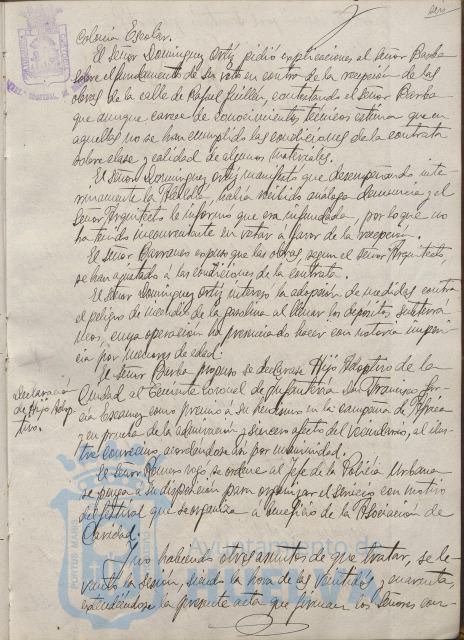 Colonia Escolar.
El Señor Dominguez Ortiz pidió explicaciones al Señor Barba
sobre el fundamento de su voto en contra de la recepción de las
obras de la calle de Rafael Guillen, contestando el Señor Barba
que aunque carece de conocimientos técnicos estima que en
aquellas no se han cumplido las condiciones de la contrata
sobre clase y calidad de algunos materiales.
El Señor Dominguez Ortiz manifestó que desempeñando inte-
rinamente la Alcaldia, habia recibido análoga denuncia y el
Señor Arquitecto le informó que era infundada, por lo que no
ha tenido inconveniente en votar a favor de la recepción.
El Señor Barranco expuso que las obras, segun el Señor Arquitecto,
se han ajustado á las condiciones de la contrata.
El Señor Dominguez Ortiz interesó la adopción de medidas contra
el peligro de incendio de la gasolina al llenar los depósitos subterra-
neos, cuya operación ha presenciado hacer con notoria imperi-
cia por menores de edad.
El Señor Barba propuso se declarase Hijo Adoptivo de la
Declaración
de Hijo Adop-
tivo.
Ciudad al Teniente Coronel de Infantería Don Francisco Gar-
cía Escamez como premio a su heroismo en la campaña de Africa
y en prueba de la admiración y sincero afecto del Vecindario, al ilus-
tre convecino acordándose así por unanimidad.
El Señor Romero rogó se ordene al Jefe de la Policía Urbana
se ponga a su disposición para organizar el servicio con motivo
del festival que se organiza a beneficio de la Asociación de
Caridad.
Y no habiendo otros asuntos de que tratar, se le-
vantó la sesión, siendo la hora de las veintidos y cuarenta,
extendiéndose la presente acta que firman los Señores con-
Ayuntamiento de
HUELVA
PORTUS MARIS